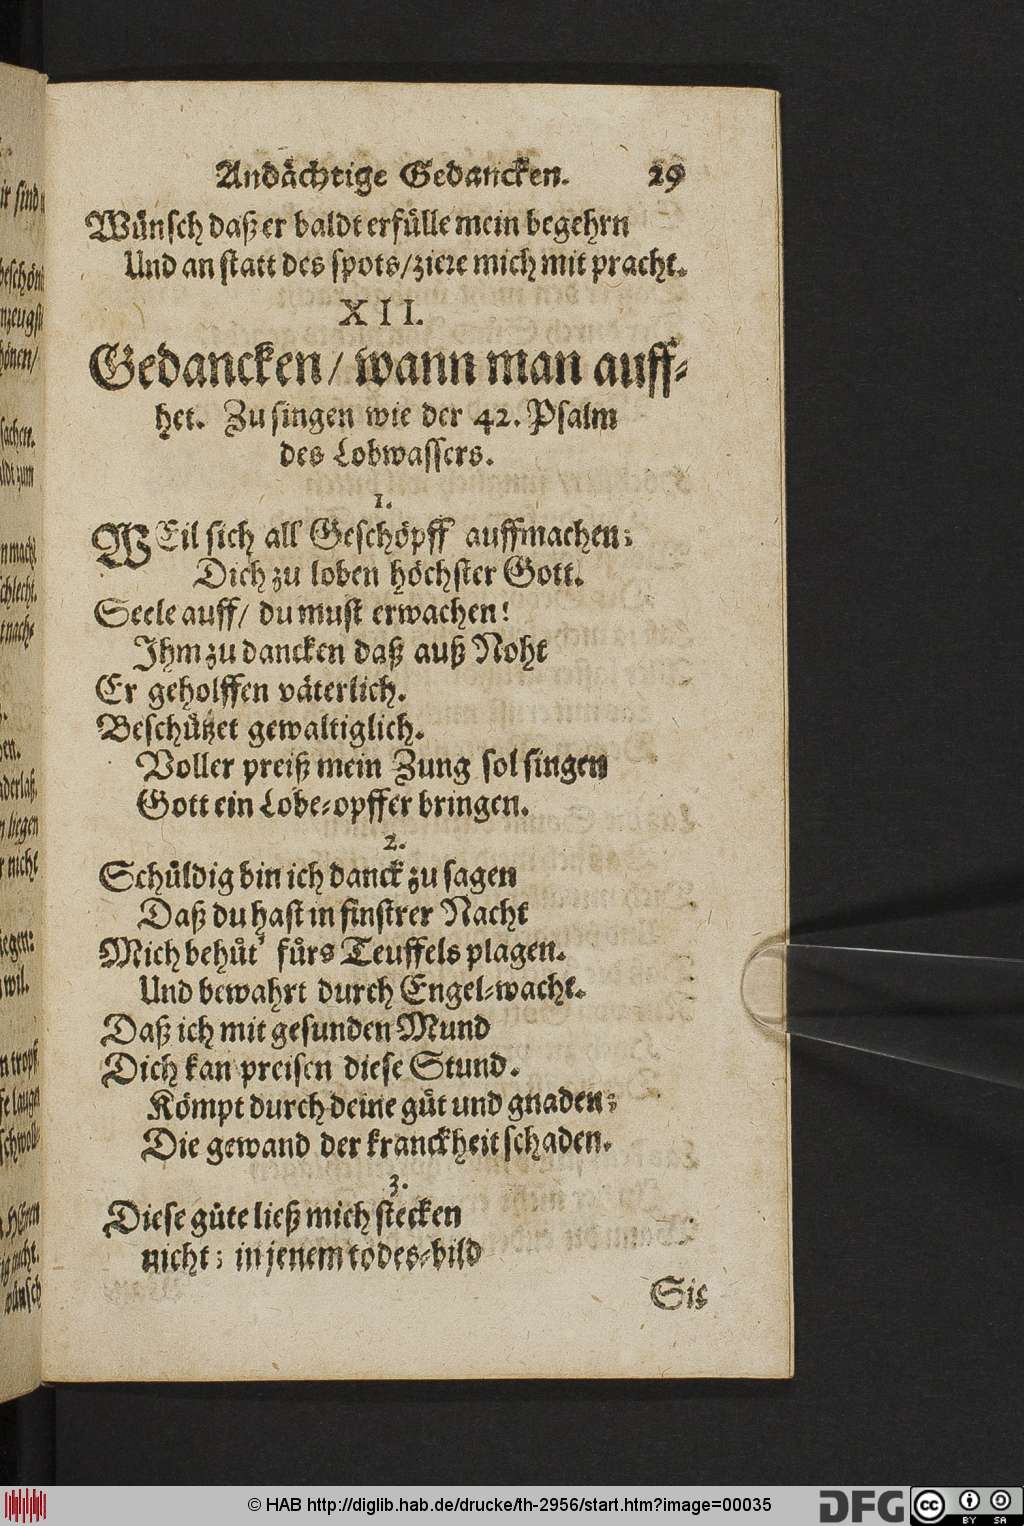 Andächtige Gedancken. 29
Wünsch daß er baldt erfülle mein begehrn
Und an statt des spots/ziere mich mit pracht.
XII.
Gedancken/ wann man auff-
het. Zu singen wie der 42. Psalm
des Lobwassers.
1.
WEil sich all Geschöpff auffmachen;
Dich zu loben höchster Gott.
Seele auff/ du must erwachen!
Ihm zu dancken daß auß Noht
Er geholffen väterlich.
Beschützet gewaltiglich.
Voller preiß mein Zung sol singen
Gott ein Lobe-opffer bringen.
2.
Schüldig bin ich danck zu sagen
Daß du hast in finstrer Nacht
Mich behüt' fürs Teuffels plagen.
Und bewahrt durch Engel-wacht.
Daß ich mit gesunden Mund
Dich kan preisen diese Stund.
Kömpt durch deine güt und gnaden;
Die gewand der kranckheit schaden.
3.
Diese güte ließ mich stecken
nicht; in jenem todes-bild
Sie
ir sind
nzeugst
hönen/
sachen.
ldt zum
n macht
schlecht.
nen.
aderlaß.
n liegen
r nicht
iegen:
wil.
n tropf
HErren
wünsch
© HAB http://diglib.hab.de/drucke/th-2956/start.htm?image=00035
DFG
cc BY SA